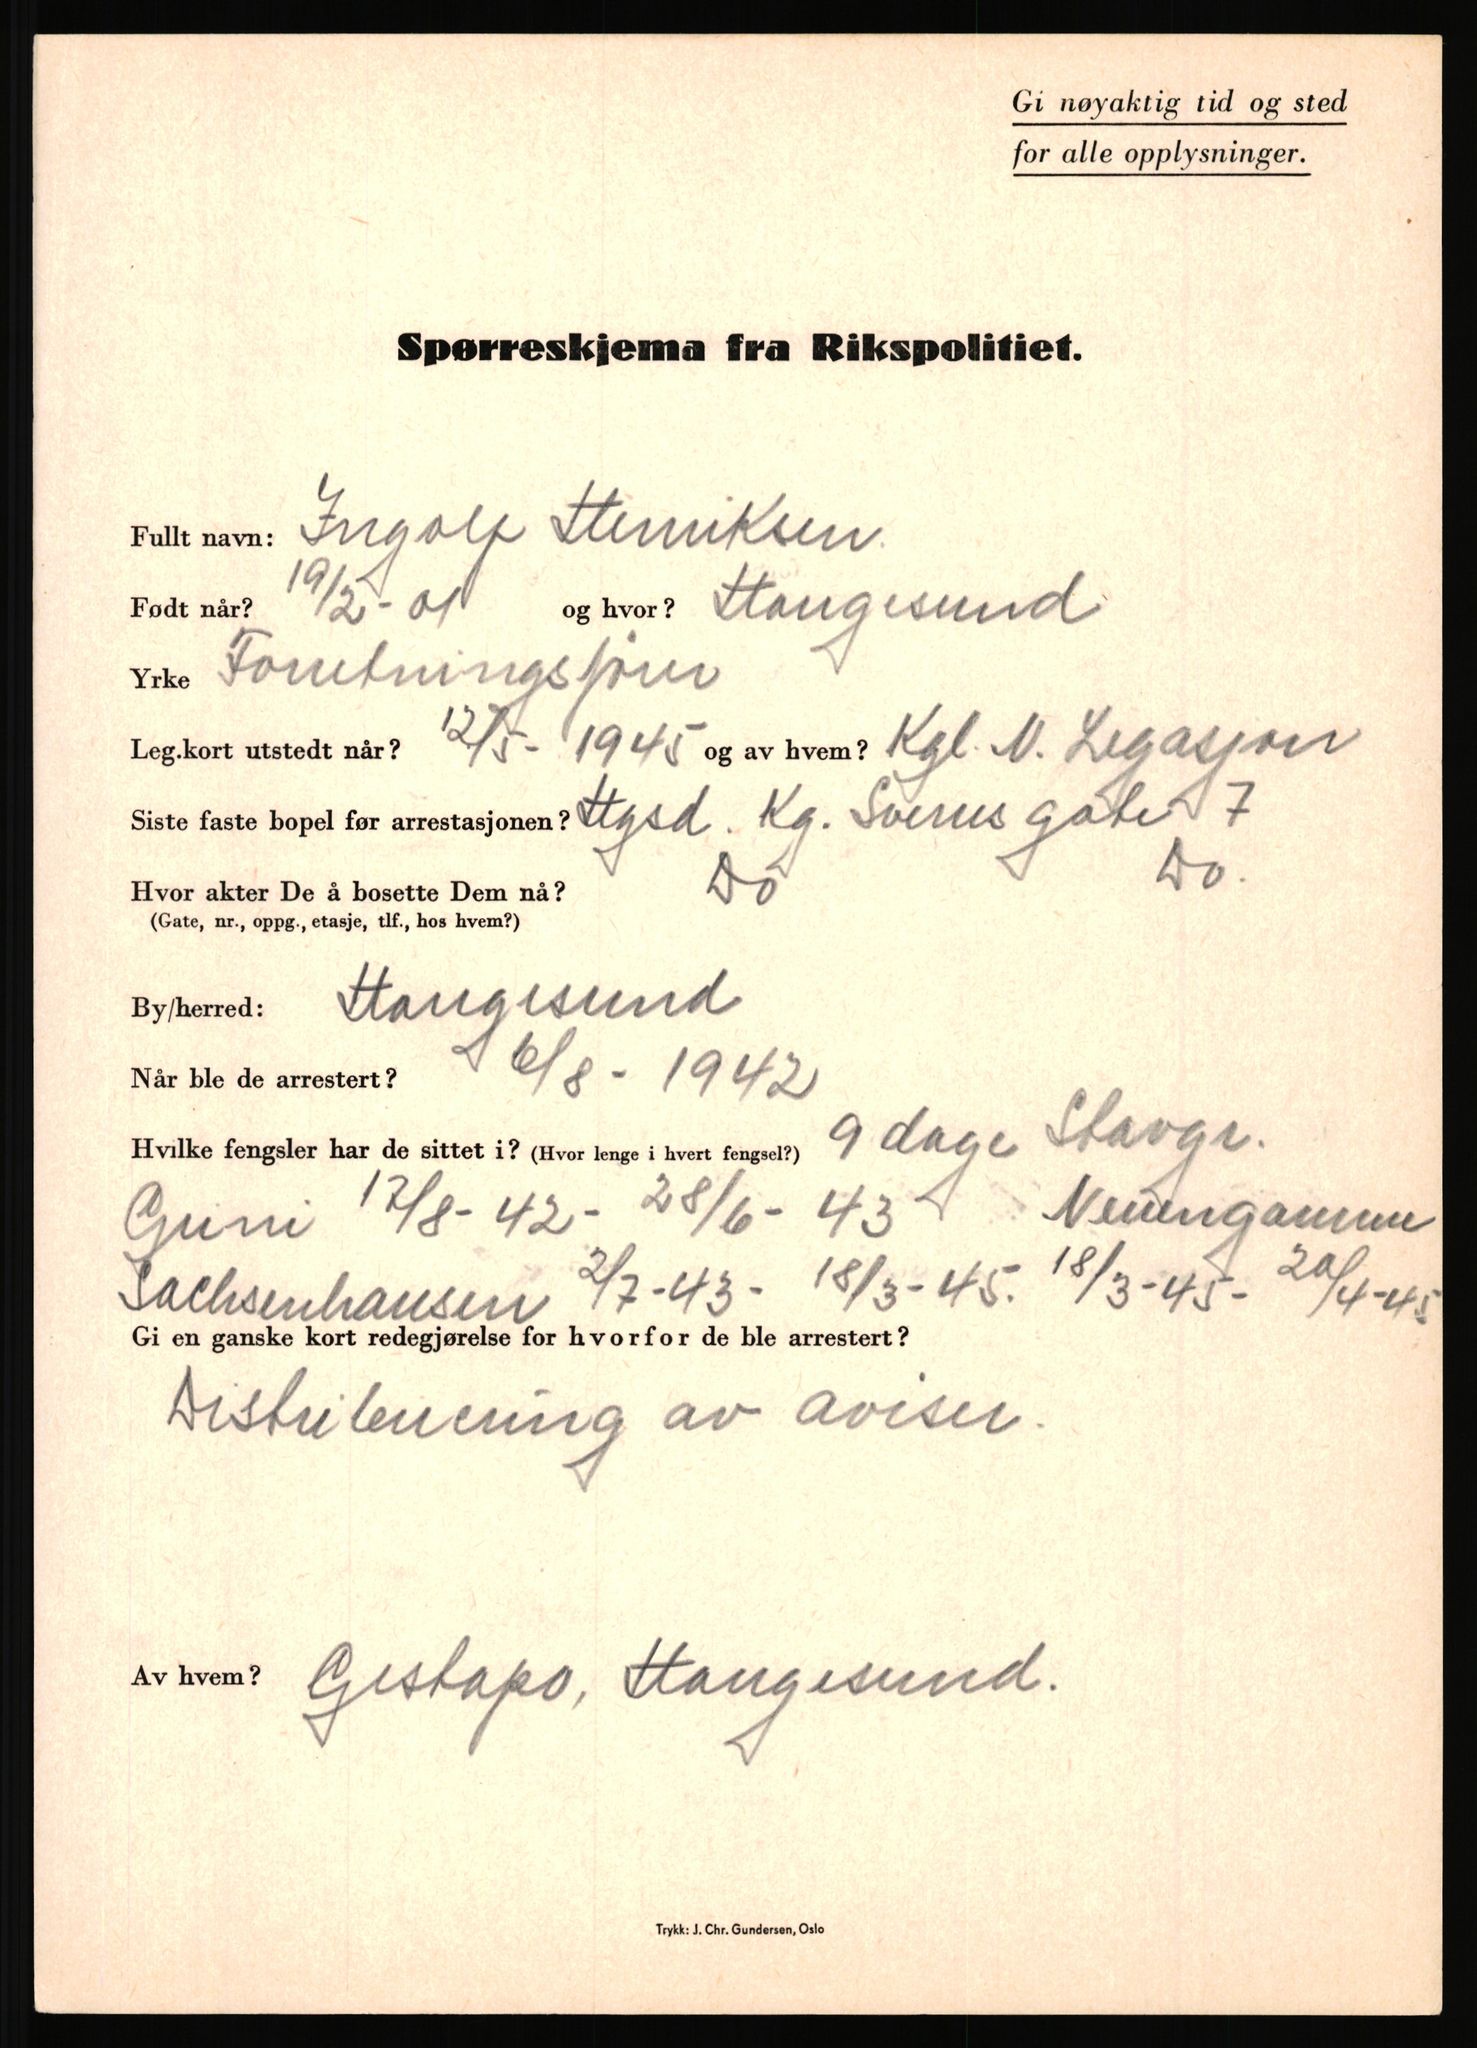 Gi nøyaktig tid og sted
for alle opplysninger.
Spørreskjema fra Rikspolitiet.
Fullt navn: Ingolf Henriksen.
Født når? 19/2-01 og hvor? Haugesund
Yrke Forretningsfører
Leg.kort utstedt når? 12/5- 1945 og av hvem? Kgl. N. Legasjon
Siste faste bopel før arrestasjonen? Hgsd. Kg. Sverres gate 7
Hvor akter De å bosette Dem nå? Do Do.
(Gate, nr., oppg., etasje, tlf., hos hvem?)
By/herred: Haugesund
Når ble de arrestert? 6/8- 1942
Hvilke fengsler har de sittet i? (Hvor lenge i hvert fengsel?) 9 dage Stavgr.
Grini 17/8-42- 28/6- 43 Neuengamme
Sachsenhausen 2/7-43- 18/3-45. 18/3-45- 20/4-45
Gi en ganske kort redegjørelse for hvorfor de ble arrestert?
Distribuering av aviser.
Av hvem? Gestapo, Haugesund.
Trykk: J. Chr. Gundersen, Oslo